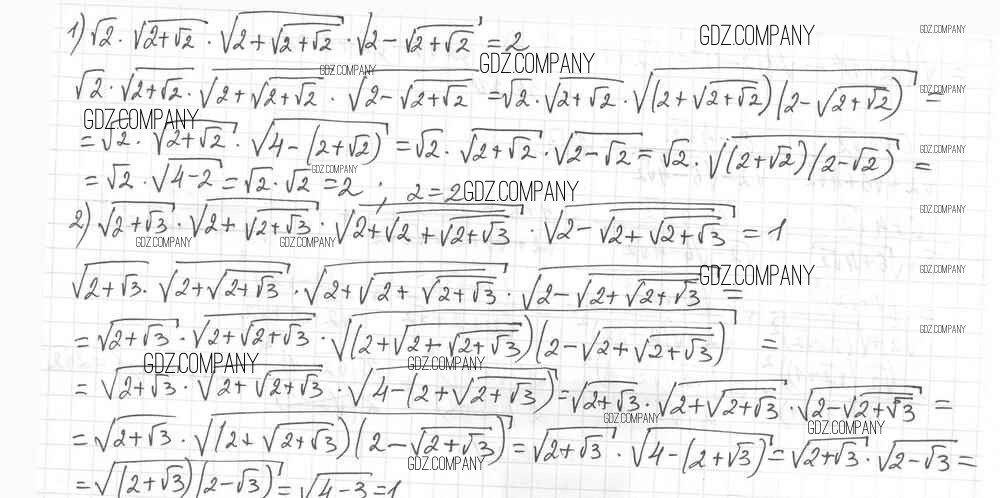 1) √2 · √(2+√2) · √(2+√(2+√2)) · √(2-√(2+√2)) = 2
GDZ.COMPANY GDZ.COMPANY
GDZ.COMPANY GDZ.COMPANY
√2 · √(2+√2) · √(2+√(2+√2)) · √(2-√(2+√2)) = √2 · √(2+√2) · √((2+√(2+√2))(2-√(2+√2))) =
GDZ.COMPANY
GDZ.COMPANY
= √2 · √(2+√2) · √(4-(2+√2)) = √2 · √(2+√2) · √(2-√2) = √2 · √((2+√2)(2-√2)) =
GDZ.COMPANY
GDZ.COMPANY
= √2 · √(4-2) = √2 · √2 = 2 ; 2=2
GDZ.COMPANY
2) √(2+√3) · √(2+√(2+√3)) · √(2+√2+√(2+√3)) · √(2-√(2+√(2+√3))) = 1
GDZ.COMPANY
GDZ.COMPANY GDZ.COMPANY
√(2+√3) · √(2+√(2+√3)) · √(2+√(2+√(2+√3))) · √(2-√(2+√(2+√3))) =
GDZ.COMPANY GDZ.COMPANY
= √(2+√3) · √(2+√(2+√3)) · √((2+√(2+√(2+√3)))(2-√(2+√(2+√3)))) =
GDZ.COMPANY
GDZ.COMPANY GDZ.COMPANY
= √(2+√3) · √(2+√(2+√3)) · √(4-(2+√(2+√3))) = √(2+√3) · √(2+√(2+√3)) · √(2-√(2+√3)) =
GDZ.COMPANY GDZ.COMPANY
= √(2+√3) · √((2+√(2+√3))(2-√(2+√3))) = √(2+√3) · √(4-(2+√3)) = √(2+√3) · √(2-√3) =
GDZ.COMPANY
= √((2+√3)(2-√3)) = √(4-3) = 1